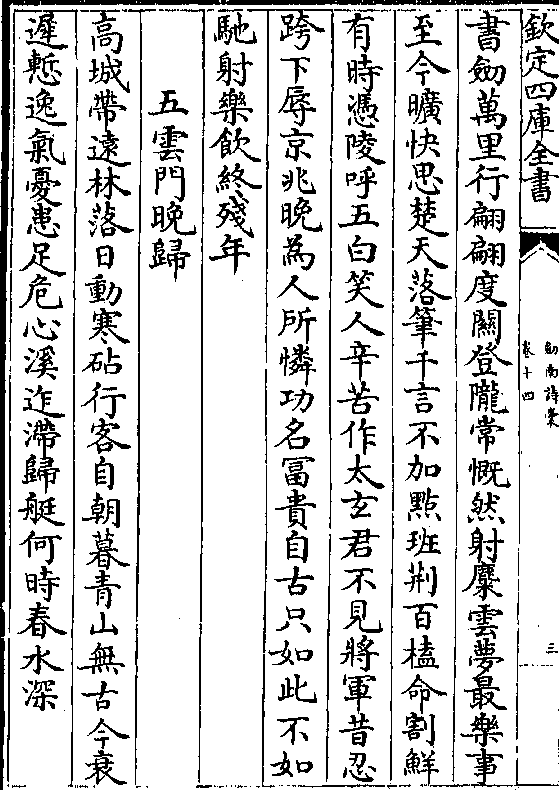 欽定四庫全書
劍南詩稾
卷十四
三
書劒萬里行翩翩度關登隴常慨然射麋雲夢最樂事
至今曠快思楚天落筆千言不加點班荆百榼命割鮮
有時憑陵呼五白笑人辛苦作太玄君不見將軍昔忍
跨下辱京兆晚為人所憐功名冨貴自古只如此不如
馳射樂飲終殘年
五雲門晚歸
高城帶遠林落日動寒砧行客自朝暮青山無古今衰
遲慙逸氣憂患足危心溪迮滯歸艇何時春水深